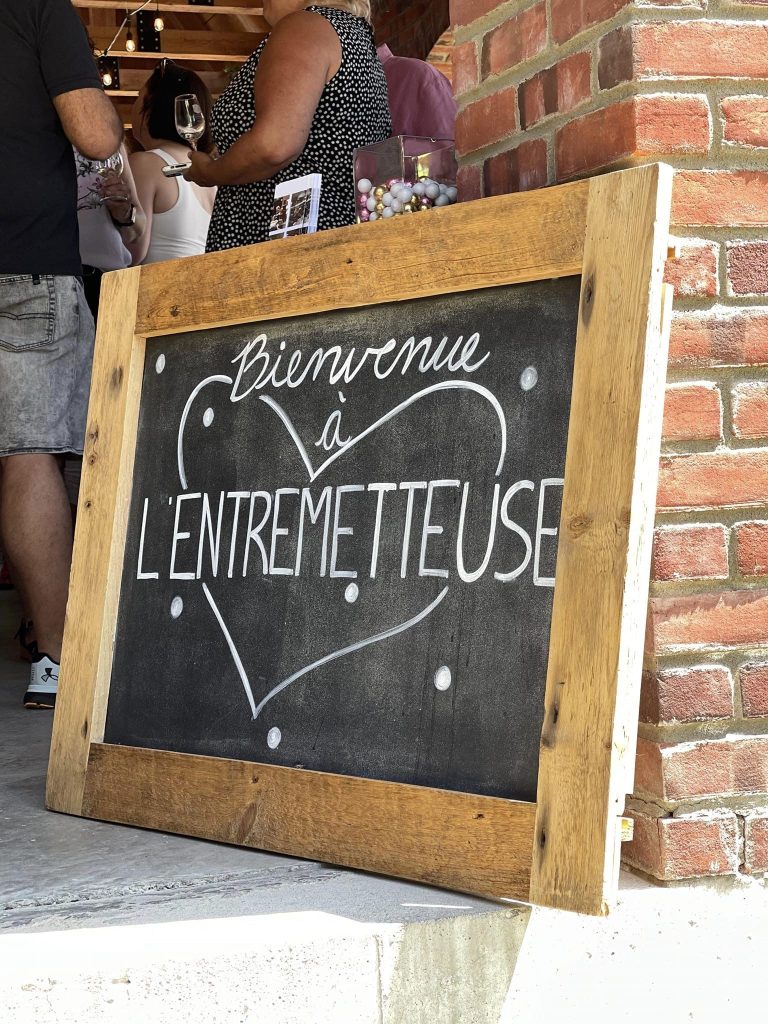 Bienvenue
à
L'ENTREMETTEUSE